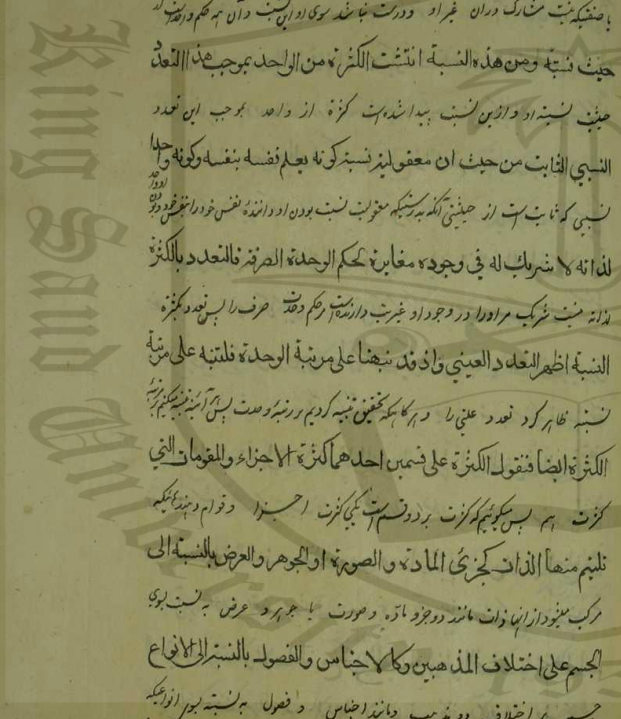 با صفتیکه نیست مشارک در آن غیر او و درست نباشد سوی او این نسبت و آن همه حکم واحدیت
حيث نسبة ومن هذه النسبة انتشت الكثرة من الواحد بموجب هذا التعدد
حیثیت نسبته او و ازین نسبت پیدا شده است کثرة از واحد بموجب این تعدد
النسبي الثابت من حيث ان معقولية نسبة كونه يعلم نفسه بنفسه وكونه واحدا
نسبی که ثابت است از حیثیتی آنکه بدرستیکه معقولیت نسبت بودن او داننده نفس خود را بنفس خود
لذاته لا شريك له في وجوده مغايرة لحكم الوحدة الصرفة فالتعدد بالكثرة
لذاته نیست شریک مر او را در وجود او غیریت دارنده است مر حکم وحدت صرف را پس تعدد بکثرة
النسبة اظهر التعدد العيني واذ قد نبهنا على مرتبة الوحدة فلننبه على مرتبة
نسبته ظاهر کرد تعدد عینی را و هرگاهیکه تحقیق تنبیه کردیم بر رتبهٔ وحدت پس آئینه تنبیه میکنیم بر مرتبهٔ
الكثرة ايضا فنقول الكثرة على قسمين احدهما كثرة الاجزاء والمقومات التي
کثرت هم پس میگوئیم که کثرت بر دو قسم است یکی کثرت اجزا و قوام دهندهائیکه
تلتئم منها الذات كجزئى المادة والصورة او الجوهر والعرض بالنسبة الى
مرکب میشود از انها ذات مانند دو جزو ماده و صورت یا جوهر و عرض به نسبت بسوی
الجسم على اختلاف المذهبين وكالاجناس والفصول بالنسبة الى الانواع
جسم بر اختلاف دو مذهب و مانند اجناس و فصول به نسبته بسوی انواعیکه
King Saud University